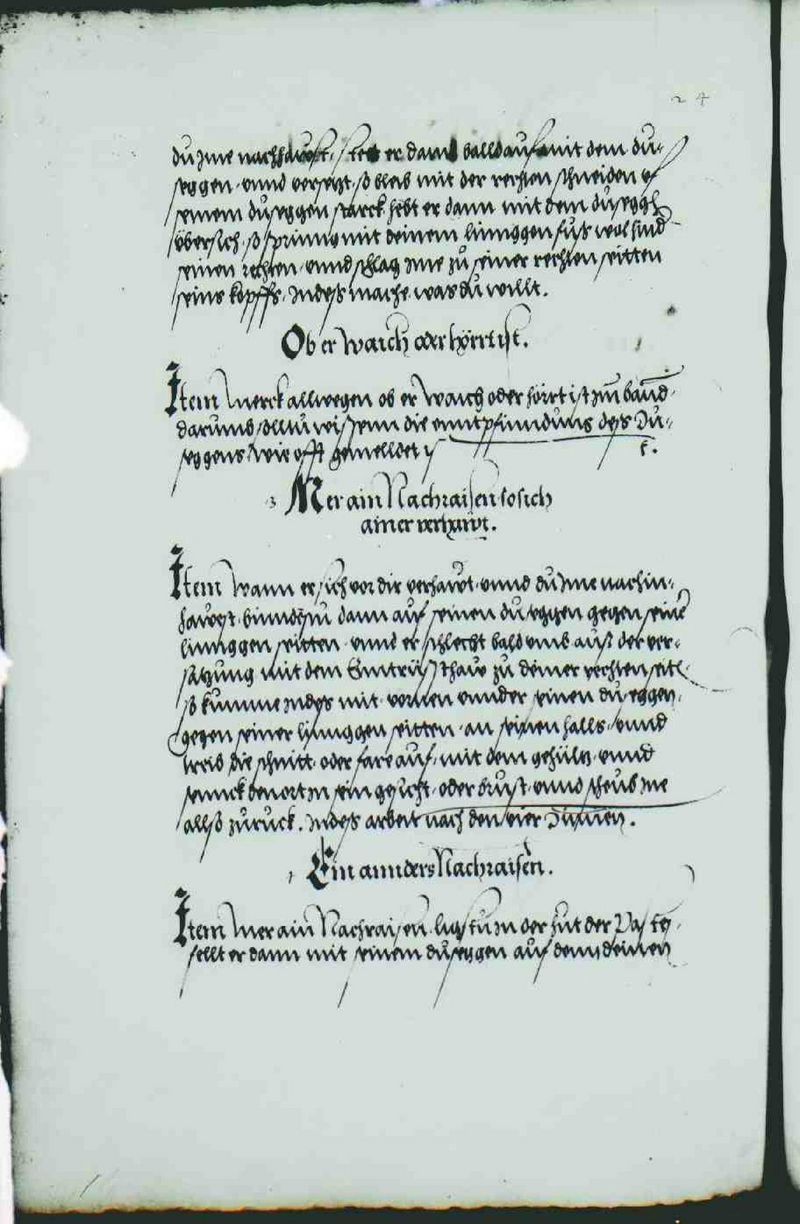 24
du Jme nachhawst, stet er dann balld auf mit dem du=
seggen vnnd versetzt, so bleib mit der rechten schneiden vf
seinem duseggen starck hebt er dann mit dem duseggh
übersich, so spring mit deinem linnggen fus wol hind
seinen rechten, vnnd schlag Jme zu seiner rechten seitten
seins kopffs, Jndes mache was du willt.
Ob er waich oder hört ist.
Item Merck allwegen ob er waich oder hört ist Jm bannd
darumb solltu wissenn die enntpfinndung des Du=
seggens, wie offt gemelldet is t.
3 Mer ain Nachraisen so sich
ainer verhawt.
Item Wann er sich vor dir verhawt vnnd du Jme nachin=
hawest, binndstu dann auf seinen duseggen gegen seine
linnggen seitten vnnd er schlecht bald vmb aus der ver=
satzung mit dem Enntrüsthaw zu deiner rechten seit
so kumme Jndes mit vornen vnnder seinen duseggen,
gegen seiner linnggen seitten an seinen halls, vnnd
treib die schnitt, oder fare auf, mit dem gehültz vnnd
senck den ort Jn sein gesicht, oder brust, vnnd scheub Jne
allso zuruck. Jndes arbeit nach den vier Dünen.
Ein annders Nachraisen.
Item Mer ain Nachraisen, ligstu Jn der hut der Vastes,
fellt er dann mit seinem duseggen auf denn deinen